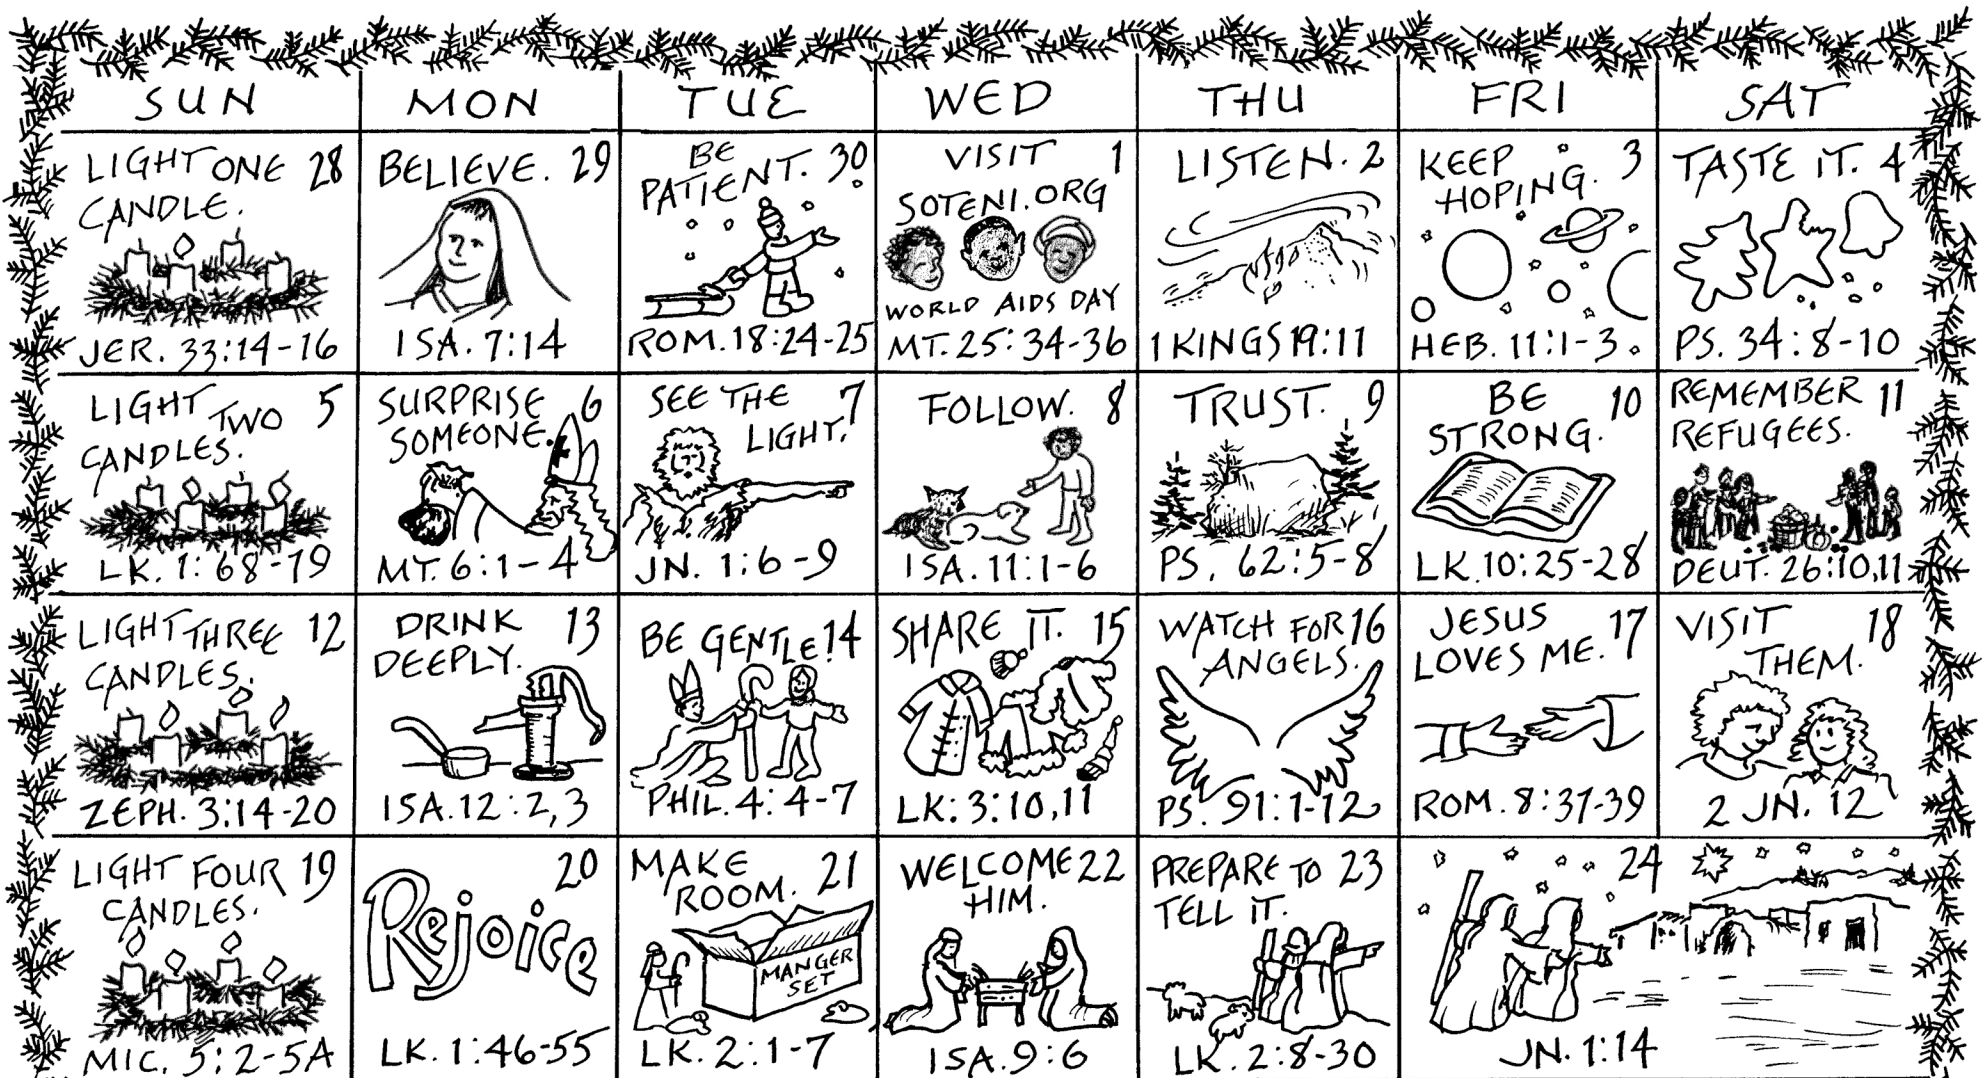 SUN MON TUE WED THU FRI SAT
LIGHT ONE 28
CANDLE.
JER. 33:14-16
BELIEVE. 29
ISA. 7:14
BE
PATIENT. 30
ROM. 18:24-25
VISIT 1
SOTENI.ORG
WORLD AIDS DAY
MT. 25:34-36
LISTEN. 2
1 KINGS 19:11
KEEP 3
HOPING.
HEB. 11:1-3
TASTE IT. 4
PS. 34:8-10
LIGHT TWO 5
CANDLES.
LK. 1:68-79
SURPRISE 6
SOMEONE.
MT. 6:1-4
SEE THE 7
LIGHT.
JN. 1:6-9
FOLLOW. 8
ISA. 11:1-6
TRUST. 9
PS. 62:5-8
BE 10
STRONG.
LK. 10:25-28
REMEMBER 11
REFUGEES.
DEUT. 26:10,11
LIGHT THREE 12
CANDLES.
ZEPH. 3:14-20
DRINK 13
DEEPLY.
ISA. 12:2,3
BE GENTLE! 14
PHIL. 4:4-7
SHARE IT. 15
LK: 3:10,11
WATCH FOR 16
ANGELS.
PS. 91:1-12
JESUS 17
LOVES ME.
ROM. 8:37-39
VISIT 18
THEM.
2 JN. 12
LIGHT FOUR 19
CANDLES.
MIC. 5:2-5A
20
Rejoice
LK. 1:46-55
MAKE
ROOM. 21
MANGER
SET
LK. 2:1-7
WELCOME 22
HIM.
ISA. 9:6
PREPARE TO 23
TELL IT.
LK. 2:8-30
24
JN. 1:14